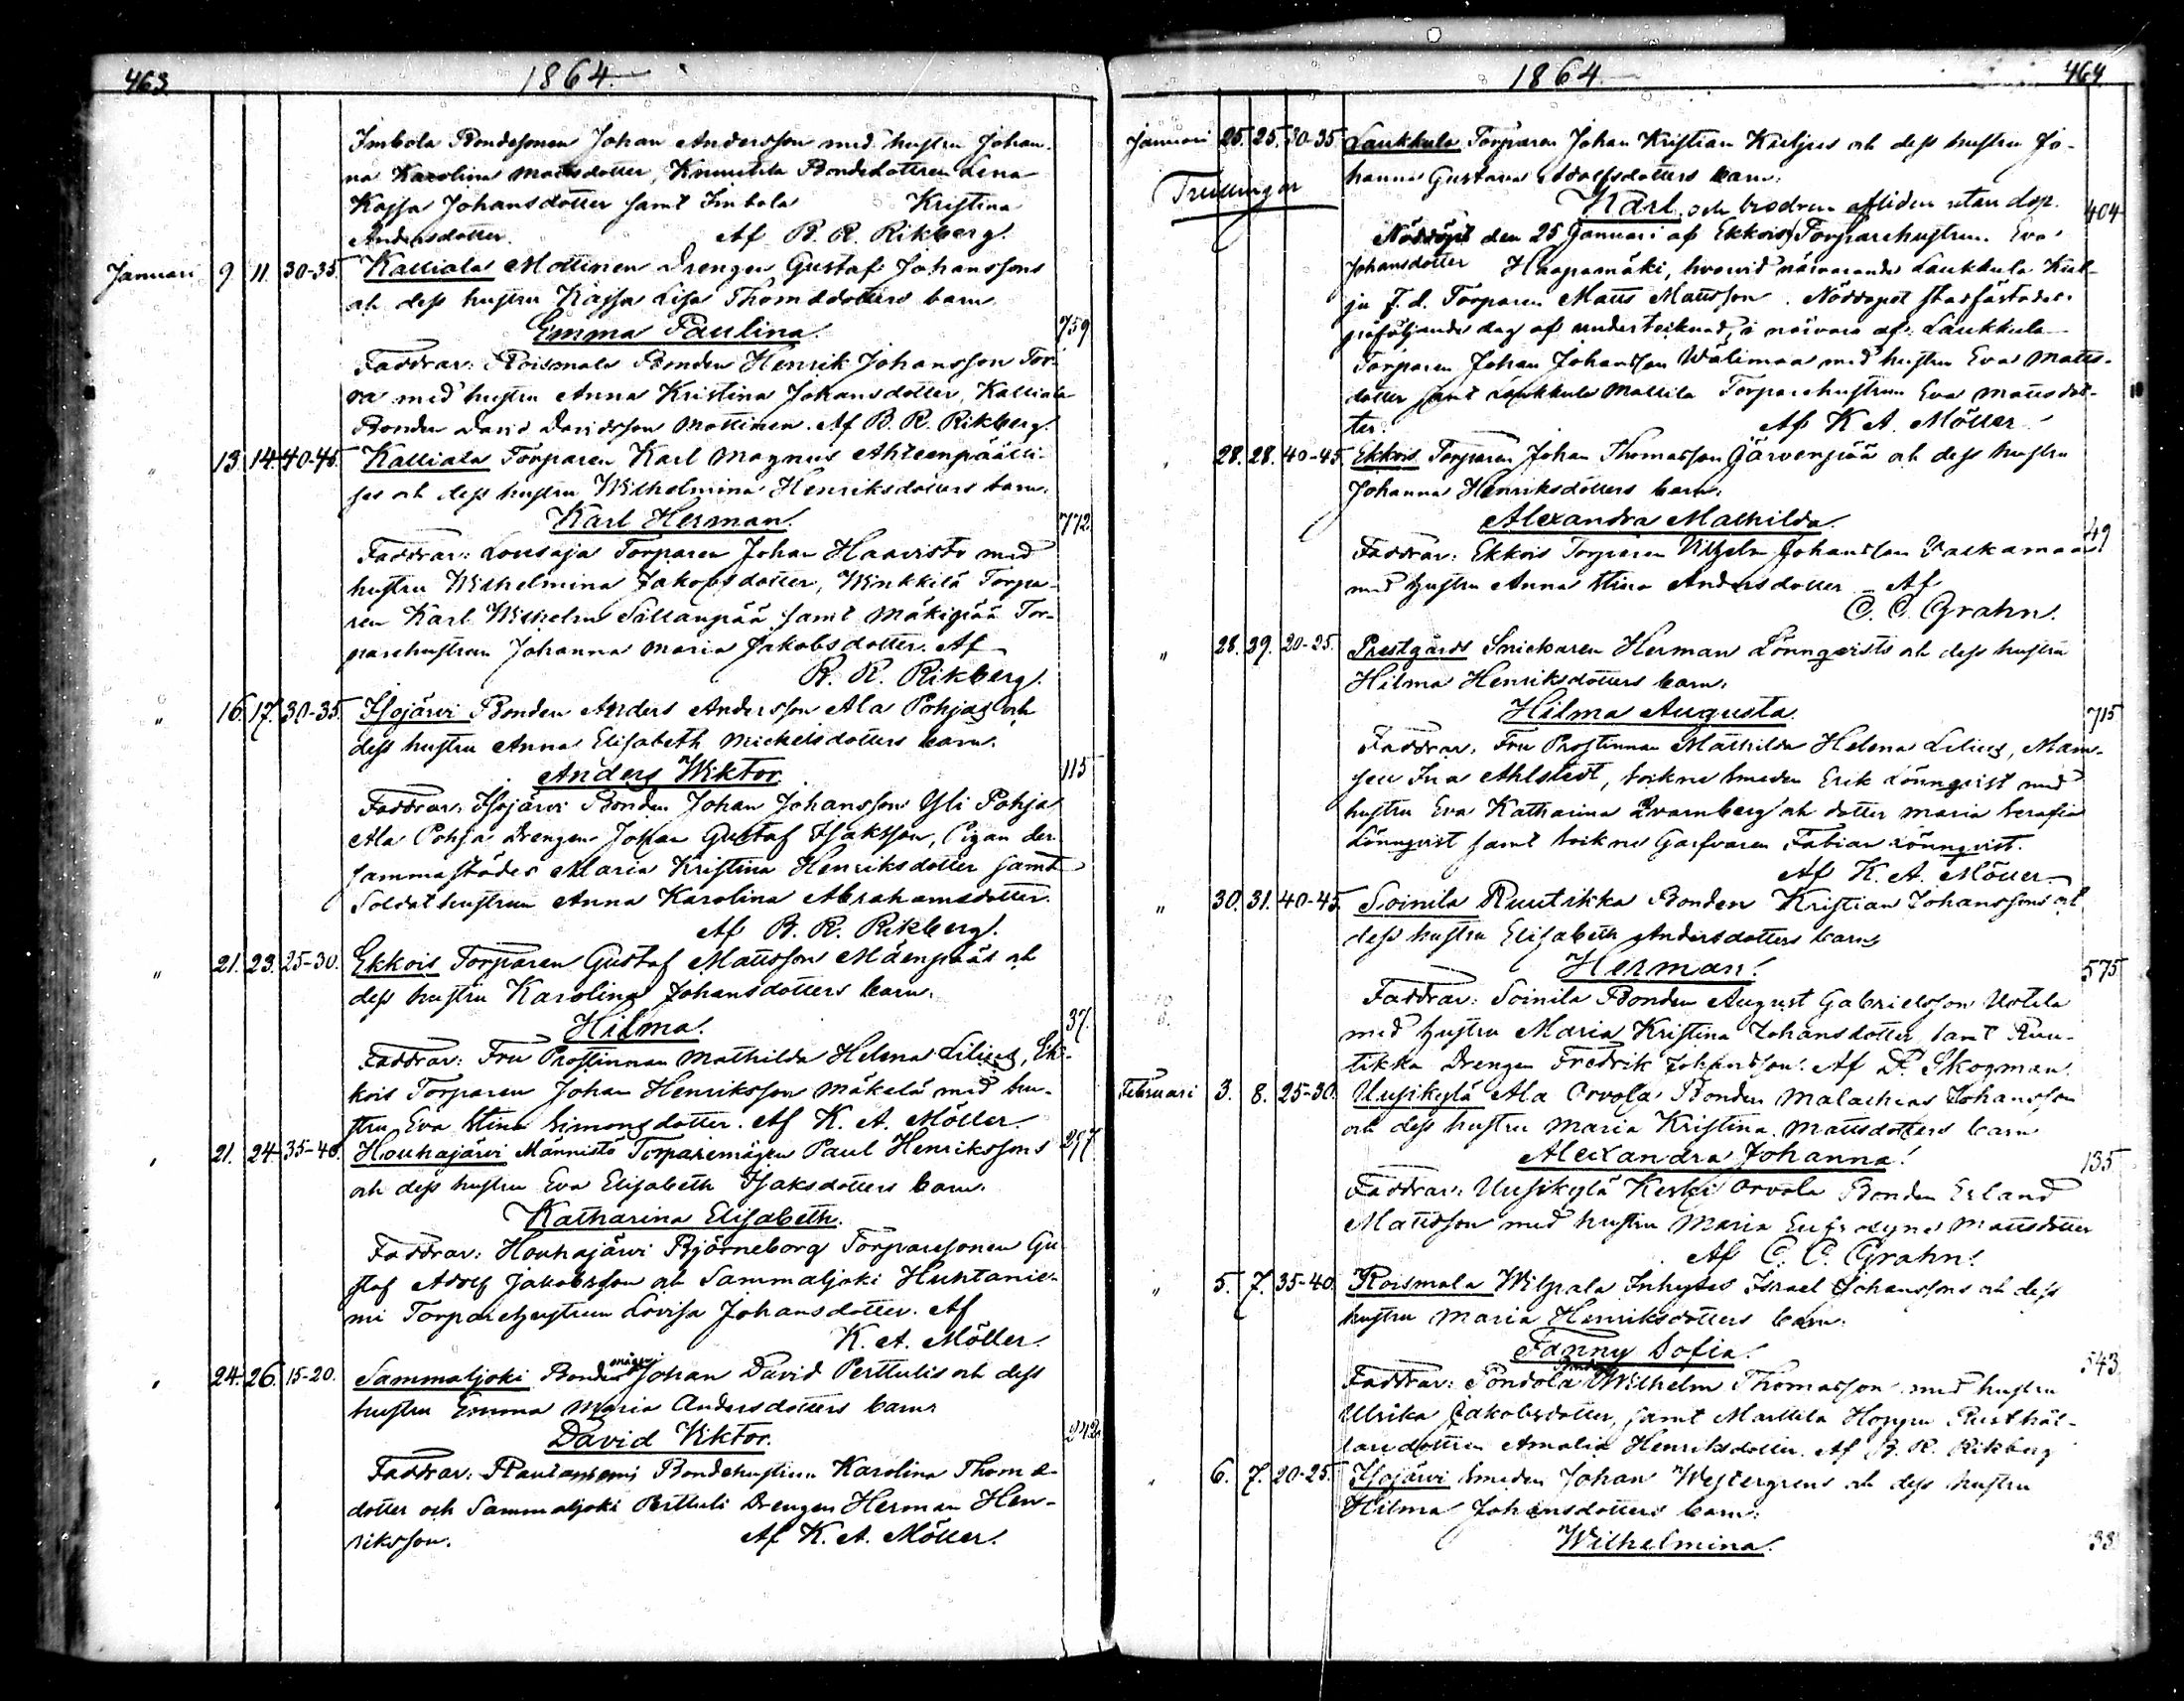 463
1864.
Imbola Bondesonen Johan Andersson med hustru Johan-
na Karolina Mattsdotter, Knuutila Bondedottren Lena
Kajsa Johansdotter samt Imbola Kristina
Andersdotter. Af B. R. Rikberg.
Januari 9. 11. 30-35. Kalliala Mottinen Drengen Gustaf Johanssons
och dess hustru Kajsa Lisa Thomsdotters barn
Emma Paulina. 759
Faddrar: Roismala Bonden Henrik Johansson Tor-
ra med hustru Anna Kristina Johansdotter, Kalliala
Bonden David Davidsson Mottinen. Af B. R. Rikberg.
" 13. 14. 40-45. Kalliala Torparen Karl Magnus
och dess hustru Wilhelmina Henriksdotters barn.
Karl Herman. 772
Faddrar: Lousaja Torparen Johan Haavisto med
hustru Wilhelmina Jakobsdotter, Winkkilä Torpa-
ren Karl Wilhelm Sillanpää samt Mäkipää Tor-
parehustrun Johanna Maria Jakobsdotter. Af
R. R. Rikberg.
" 16. 17. 30-35. Isojärvi Bonden Anders Andersson Ala Pohjas och
dess hustru Anna Elisabeth Mickelsdotters barn.
Anders Wiktor. 115
Faddrar: Isojärvi Bonden Johan Johansson Yli Pohja
Ala Pohja Drengen Johan Gustaf Isaksson, Pigan der-
sammastädes Maria Kristina Henriksdotter samt
Soldathustrun Anna Karolina Abrahamsdotter.
Af B. R. Rikberg.
" 21. 23. 25-30. Ekkois Torparen Gustaf Mattsson Mäenpääs och
dess hustru Karolina Johansdotters barn.
Hilma. 37.
Faddrar: Fru Prostinnan Mathilda Helena Lilius, Ek-
kois Torparen Johan Henriksson Mäkelä med hu-
stru Eva Stina Simonsdotter. Af K. A. Möller.
" 21. 24. 35-40. Houhajärvi Männistö Torparemågen Paul Henrikssons 297
och dess hustru Eva Elisabeth Isaksdotters barn.
Katharina Elisabeth.
Faddrar: Houhajärvi Björneborg Torparesonen Gu-
staf Adolf Jakobsson och Sammaljoki Huhtanie-
mi Torparehustrun Lovisa Johansdotter. Af
K. A. Möller.
" 24. 26. 15-20. Sammaljoki Bondemågen Johan David Perttulis och dess
hustru Emma Maria Andersdotters barn
David Viktor. 242
Faddrar: Bondehustrun Karolina Thoms-
dotter och Sammaljoki Perttuli Drengen Herman Hen-
riksson. Af K. A. Möller.
1864.
464
Januari 25. 25. 30-35. Laukkula Torparen Johan Kristian Kuljus och dess hustru Jo-
Trillingar hanna Gustava Adolfsdotters barn.
Karl, och brodren afliden utan dop. 404
Nöddöpt den 25 Januari af Ekkois Torparehustrun Eva
Johansdotter Haapamäki, hvarvid närvarande Laukkula Kul-
ju f. d. Torparen Matts Mattsson. Nöddopet stadfästades
påföljande dag af undertecknad, i närvaro af: Laukkula
Torparen Johan Johansson Wälimaa med hustru Eva Matts-
dotter samt Laukkula Mattila Torparehustrun Eva Mattsdot-
ter. Af K. A. Möller.
" 28. 28. 40-45. Ekkois Torparen Johan Thomasson Järvenpää och dess hustru
Johanna Henriksdotters barn.
Alexandra Mathilda. 49
Faddrar: Ekkois Torparen Vilhelm Johansson Valkamaa
med hustru Anna Stina Andersdotter. Af
C. C. Grahn.
" 28. 29. 20-25. Prestgårds Snickaren Herman Lönnqvists och dess hustru
Hilma Henriksdotters barn.
Hilma Augusta. 715
Faddrar: Fru Prostinnan Mathilda Helena Lilius, Mam-
sell Ina Ahlstedt, Soikne Smeden Erik Lönnqvist med
hustru Eva Katharina Qvarnberg och dotter Maria Serafia
Lönnqvist samt Soikne Garfvaren Fabian Lönnqvist.
Af K. A. Möller.
" 30. 31. 40-45. Soinila Ruutikka Bonden Kristian Johanssons och
dess hustru Elisabeth Andersdotters barn
Herman. 575
Faddrar: Soinila Bonden August Gabrielsson Uotila
med hustru Maria Kristina Johansdotter samt Ruu-
tikka Drengen Fredrik Johansson. Af D. Skogman.
Februari 3. 8. 25-30. Uusikylä Ala Orvola Bonden Malachias Johansson
och dess hustru Maria Kristina Mattsdotters barn
Alexandra Johanna. 135
Faddrar: Uusikylä Keski Orvola Bonden Erland
Mattsson med hustru Maria Eufrosyne Mattsdotter
Af C. C. Grahn.
" 5. 7. 35-40. Roismala Wilpala Inhyses Israel Johanssons och dess
hustru Maria Henriksdotters barn.
Fanny Sofia. 543
Faddrar: Pondola Bonden Wilhelm Thomasson med hustru
Ulrika Jakobsdotter, samt Marttila Hoppu Rusthål-
laredottren Amalia Henriksdotter. Af B. R. Rikberg
" 6. 7. 20-25. Isojärvi Smeden Johan Westergrens och dess hustru
Hilma Johansdotters barn.
Wilhelmina. 33